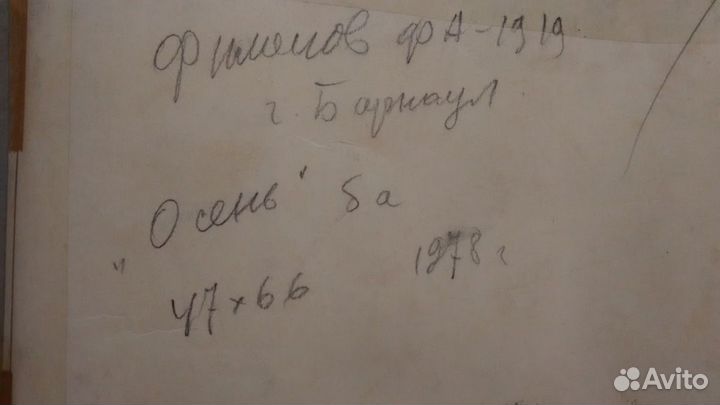 Филонов ФА-1919
г. Барнаул.
"Осень" ба
1978 г
47х66
Avito